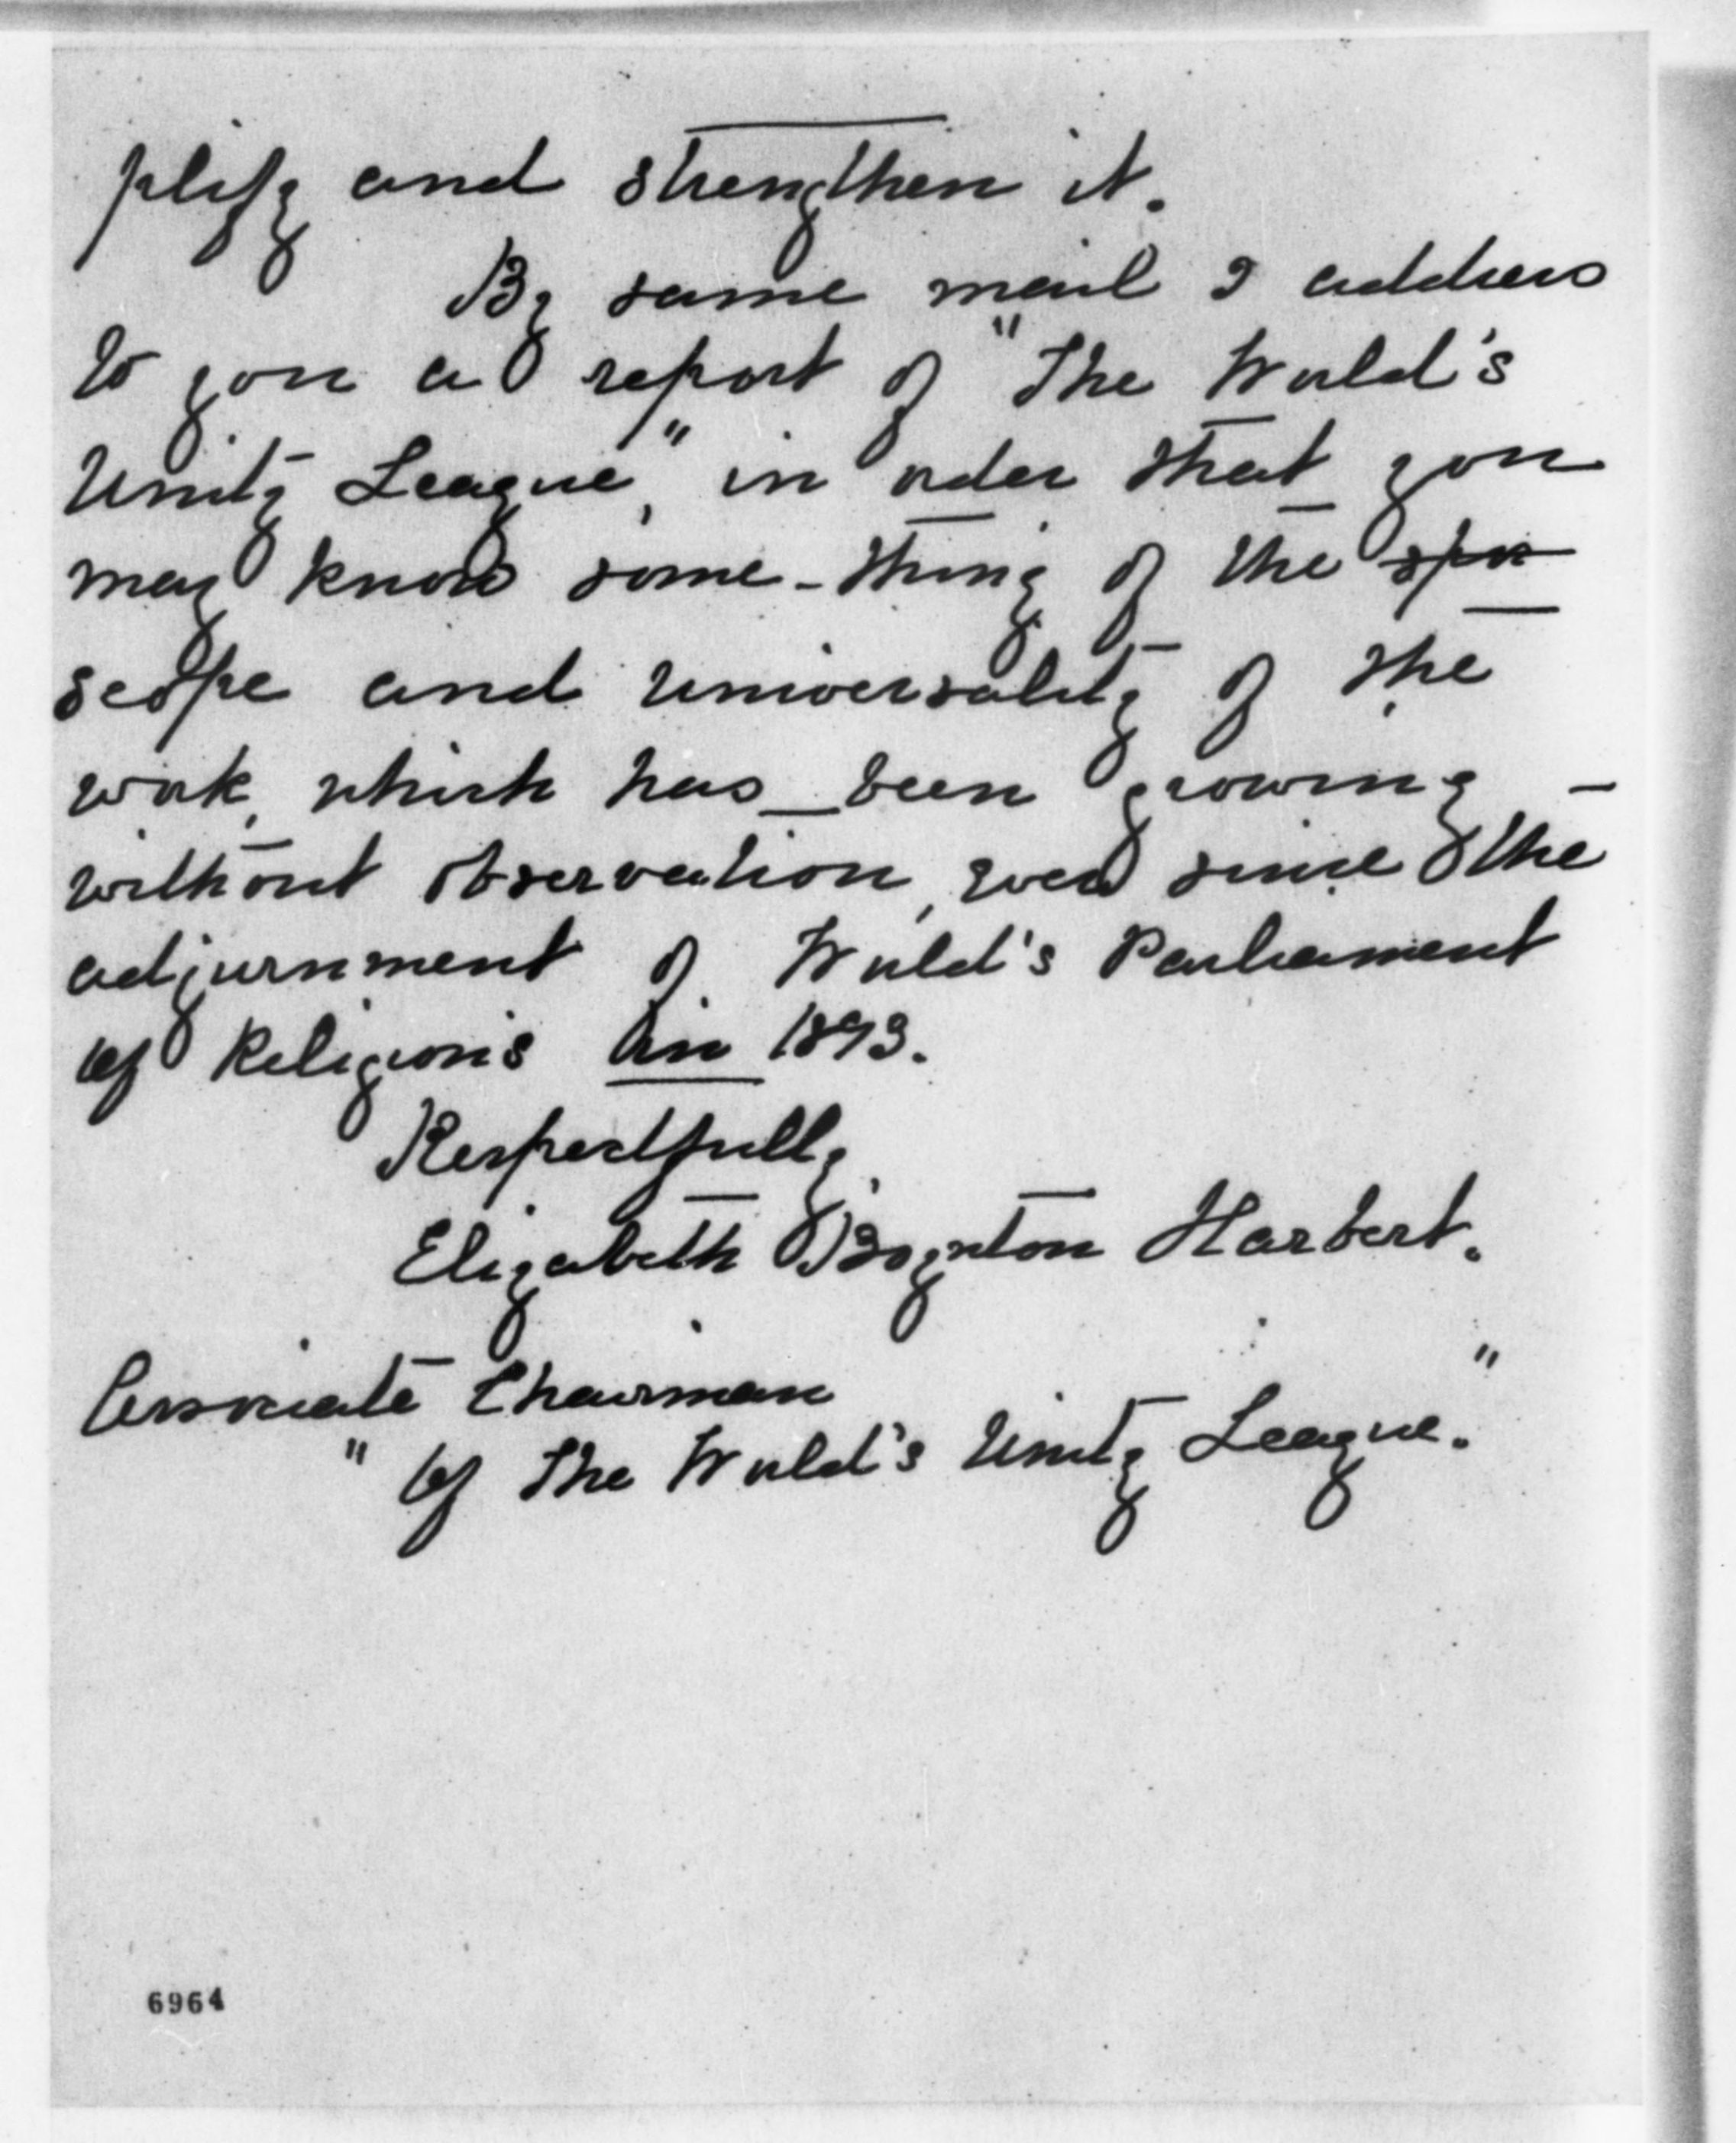 plify and strengthen it.
By same mail I address
to you a report of "The World's
Unity League", in order that you
may know some-thing of the spu
scope and universality of the
work, which has been growing -
without observation, ever since the
adjournment of World's Parliament
of Religions in 1893.
Respectfully,
Elizabeth Boynton Harbert.
Associate Chairman
" Of The World's Unity League."
6964